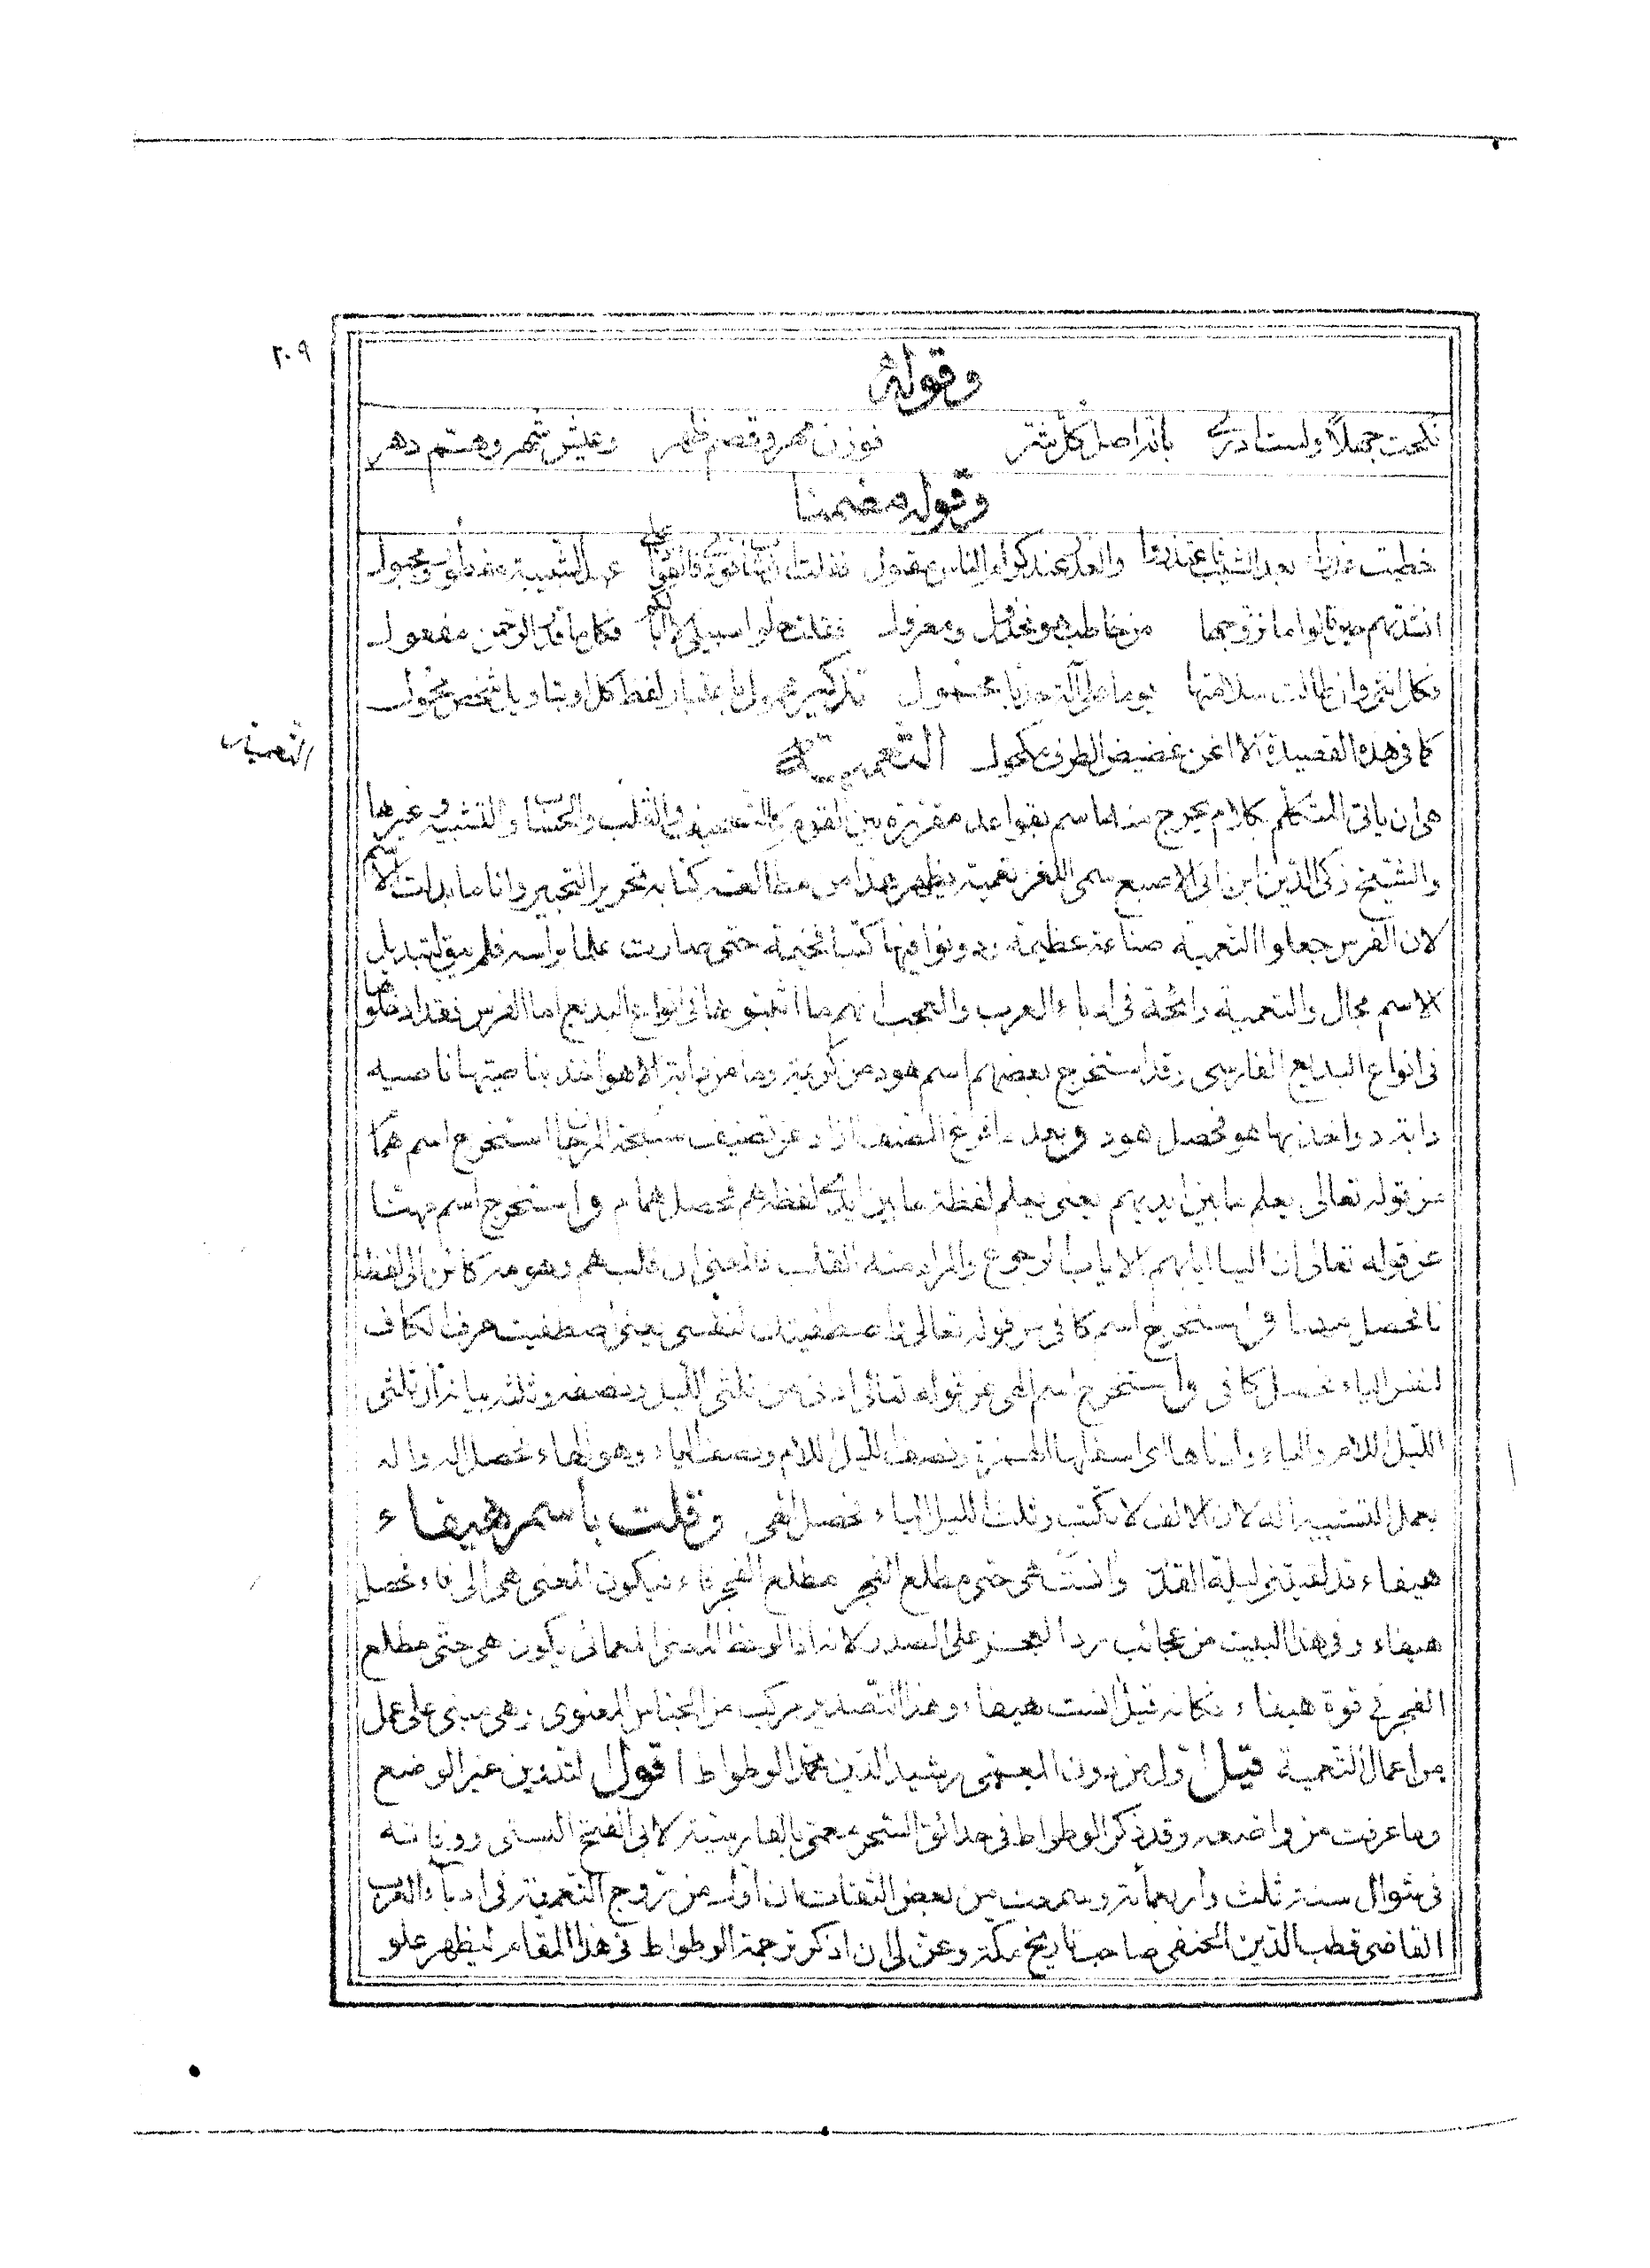 ٢٠٩
وقوله
نكحت جهلا ولست ادري بانه اصل كل شر فوزن مهر وقصم ظهر وعيش شهر وهم دهر
وقوله مضمنا
خطبت بعد الشيب والعذر عند كرام الناس مقبول فقلت
انشدتهم حين قالوا ما تزوجها من خاطب هو ومعزول فقلت خلوا سبيلي لا ابا لكم فكل ما قدر الرحمن مفعول
وكل انثى وان طالت سلامتها يوما على آلة حدبا محمول تذكير محمول باعتبار لفظ كل او بتاويل شخص محمول
كما في هذه القصيدة الا اغن غضيض الطرف مكحول التعمية
التعمية
هي ان ياتي المتكلم بكلام يخرج منه اسم بقواعد مقررة بين القوم كالتصحيف والقلب والحساب والتشبيه وغيرها
والشيخ زكي الدين ابن ابي الاصبع سمى اللغز تعمية يظهر هذا من مطالعة كتابه تحرير التحبير وانا ما بدلت الاسم
لان الفرس جعلوا التعمية صناعة عظيمة ودونوا فيها كتبا ضخيمة حتى صارت علما براسه فلم يبق لتبديل
الاسم مجال والتعمية رائجة في ادباء العرب والعجب انهم ما اثبتوها في انواع البديع اما الفرس فقد ادخلوها
في انواع البديع الفارسي وقد استخرج بعضهم اسم هود من كريمة وما من دابة الا هو اخذ بناصيتها ناصية
دابة د واخذ بها هو فحصل هود وبعد ما فرغ المصنف ازاد عن تصنيف سبحة المرجان استخرج اسم همام
من قوله تعالى يعلم ما بين ايديهم يعني يعلم لفظة ما بين ايدي لفظة هم فحصل همام واستخرج اسم مهنا
عن قوله تعالى ان الينا ايابهم الاياب الرجوع والمراد منه القلب فالمعنى ان قلب هم وهو مه كائن الى لفظ
نا فحصل مهنا واستخرج اسم كافي من قوله تعالى واصطنعتك لنفسي يعني اصطفيت حرف الكاف
لنفس الياء فحصل كافي واستخرج اسم الهي عن قوله تعالى ادنى من ثلثي الليل ونصفه وثلثه بيانه ان ثلثي
الليل اللام والياء وادناها اي اسفلها الهمزة ونصف الليل اللام ونصف الياء وهو الهاء فحصل اله واله
بعمل التشبيه اله لان الالف لا تكتب وثلث الليل الياء فحصل الهي وقلت باسم هيفاء
هيفاء قد لقيتني ليلة القدر وانست هي حتى مطلع الفجر مطلع الفجر فاء فيكون المعنى هي الى فاء فحصل
هيفاء وفي هذا البيت من عجائب رد العجز على الصدر لانه اذا لوحظ المعنى المعمائي يكون هي حتى مطلع
الفجر في قوة هيفاء فكانه قيل انست هيفاء وهذا التصدير مركب من الجناس المعنوي وهي مبني على عمل
من اعمال التعمية قيل اول من دون المعمى رشيد الدين محمد الوطواط اقول التدوين غير الوضع
وما عرفت من واضعه وقد ذكر الوطواط في حدائق السحر معمى بالفارسية لابي الفتح البستي ووفاته
في شوال سنة ثلث واربعمائة وسمعت من بعض الثقات ان اول من روج التعمية في ادباء العرب
القاضي قطب الدين الحنفي صاحب تاريخ مكة وعن لي ان اذكر ترجمة الوطواط في هذا المقام ليظهر علو